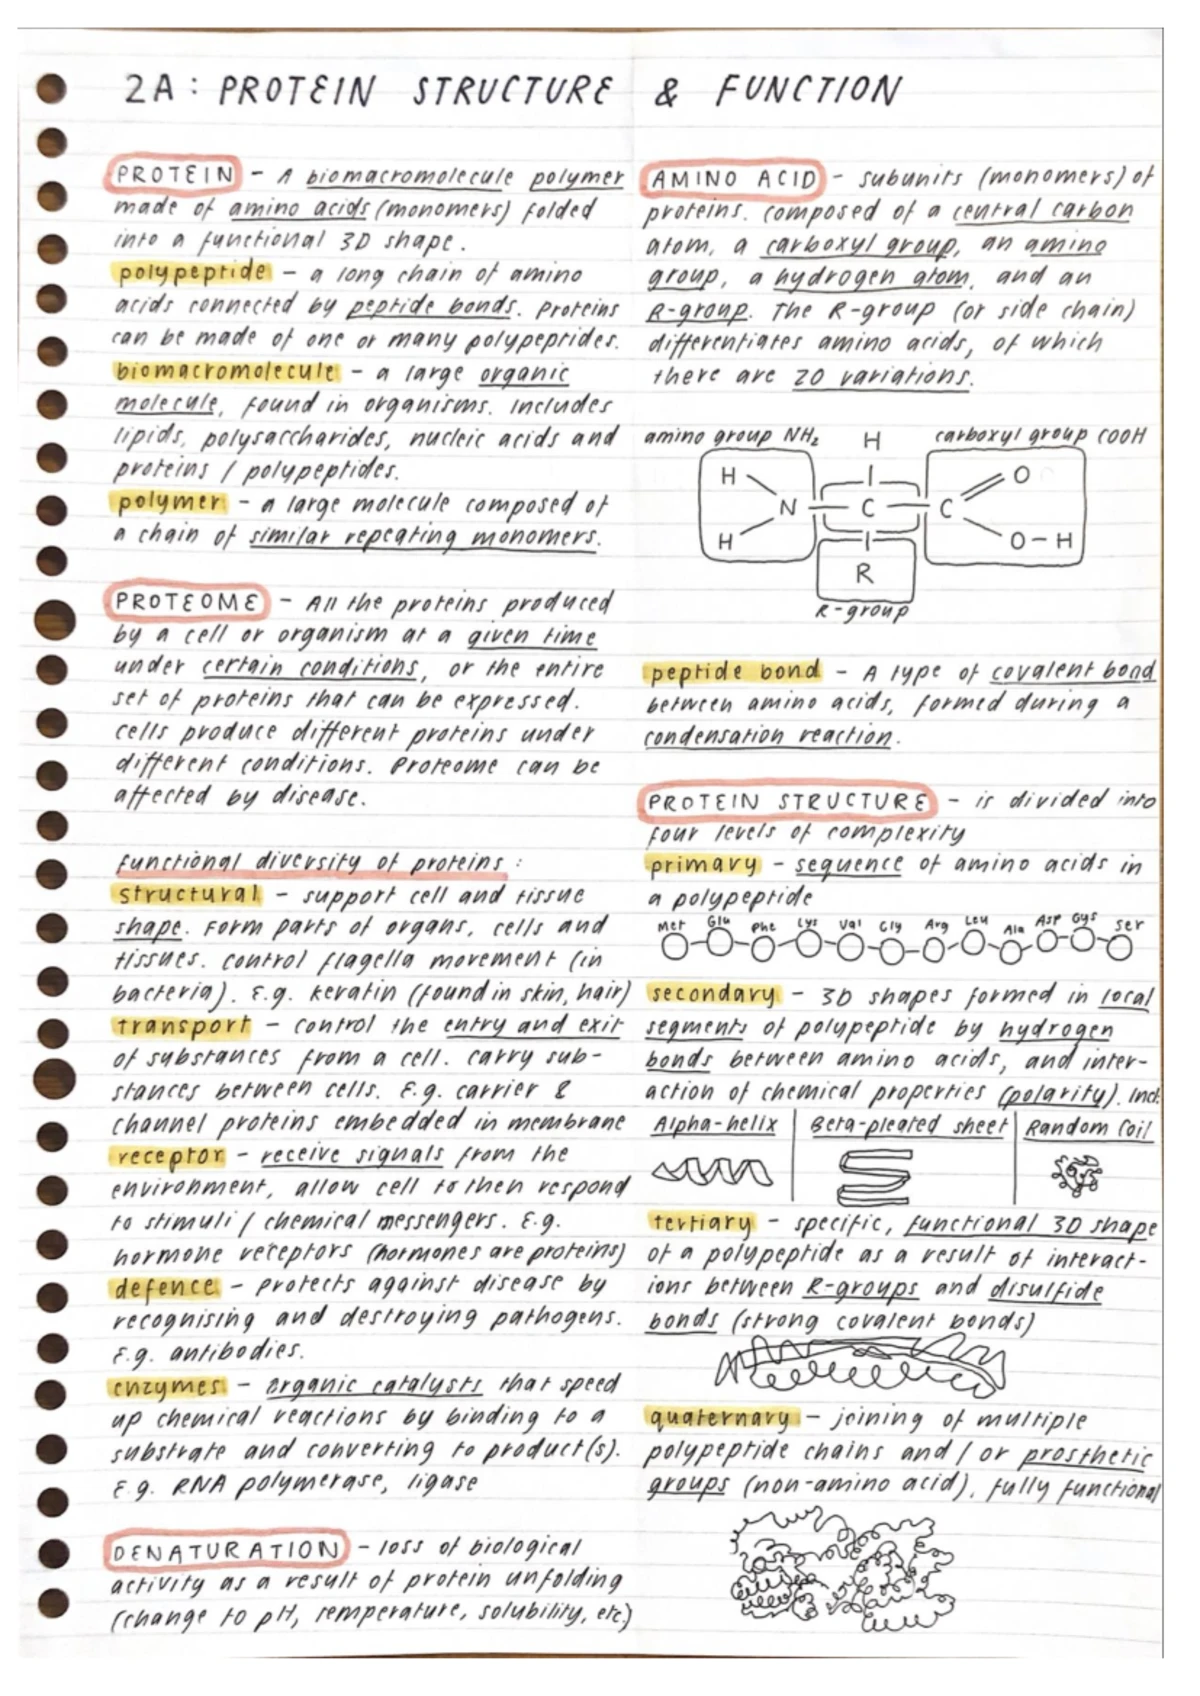 2A: PROTEIN STRUCTURE & FUNCTION
PROTEIN - A biomacromolecule polymer
made of amino acids (monomers) folded
into a functional 3D shape.
polypeptide - a long chain of amino
acids connected by peptide bonds. Proteins
can be made of one or many polypeptides.
biomacromolecule - a large organic
molecule, found in organisms. Includes
lipids, polysaccharides, nucleic acids and
proteins / polypeptides.
polymer - a large molecule composed of
a chain of similar repeating monomers.
PROTEOME - All the proteins produced
by a cell or organism at a given time
under certain conditions, or the entire
set of proteins that can be expressed.
Cells produce different proteins under
different conditions. Proteome can be
affected by disease.
functional diversity of proteins:
structural - support cell and tissue
shape. Form parts of organs, cells and
tissues. Control flagella movement (in
bacteria). E.g. keratin (found in skin, hair)
transport - control the entry and exit
of substances from a cell. Carry sub-
stances between cells. E.g. carrier &
channel proteins embedded in membrane
receptor - receive signals from the
environment, allow cell to then respond
to stimuli / chemical messengers. E.g.
hormone receptors (hormones are proteins)
defence - Protects against disease by
recognising and destroying pathogens.
E.g. antibodies.
enzymes - organic catalysts that speed
up chemical reactions by binding to a
substrate and converting to product(s).
E.g. RNA polymerase, ligase
DENATURATION - loss of biological
activity as a result of protein unfolding
(change to pH, temperature, solubility, etc)
AMINO ACID - subunits (monomers) of
proteins. Composed of a central carbon
atom, a carboxyl group, an amino
group, a hydrogen atom, and an
R-group. The R-group (or side chain)
differentiates amino acids, of which
there are 20 variations.
amino group NH₂ H carboxyl group COOH
H O
N C C
H O-H
R
R-group
peptide bond - A type of covalent bond
between amino acids, formed during a
condensation reaction.
PROTEIN STRUCTURE - is divided into
four levels of complexity
primary - sequence of amino acids in
a polypeptide
Met Glu Phe Lys Val Gly Arg Leu Ala Asp Cys Ser
secondary - 3D shapes formed in local
segments of polypeptide by hydrogen
bonds between amino acids, and inter-
action of chemical properties (polarity). Incl:
Alpha-helix Beta-pleated sheet Random Coil
tertiary - specific, functional 3D shape
of a polypeptide as a result of interact-
ions between R-groups and disulfide
bonds (strong covalent bonds)
quaternary - joining of multiple
polypeptide chains and / or prosthetic
groups (non-amino acid), fully functional